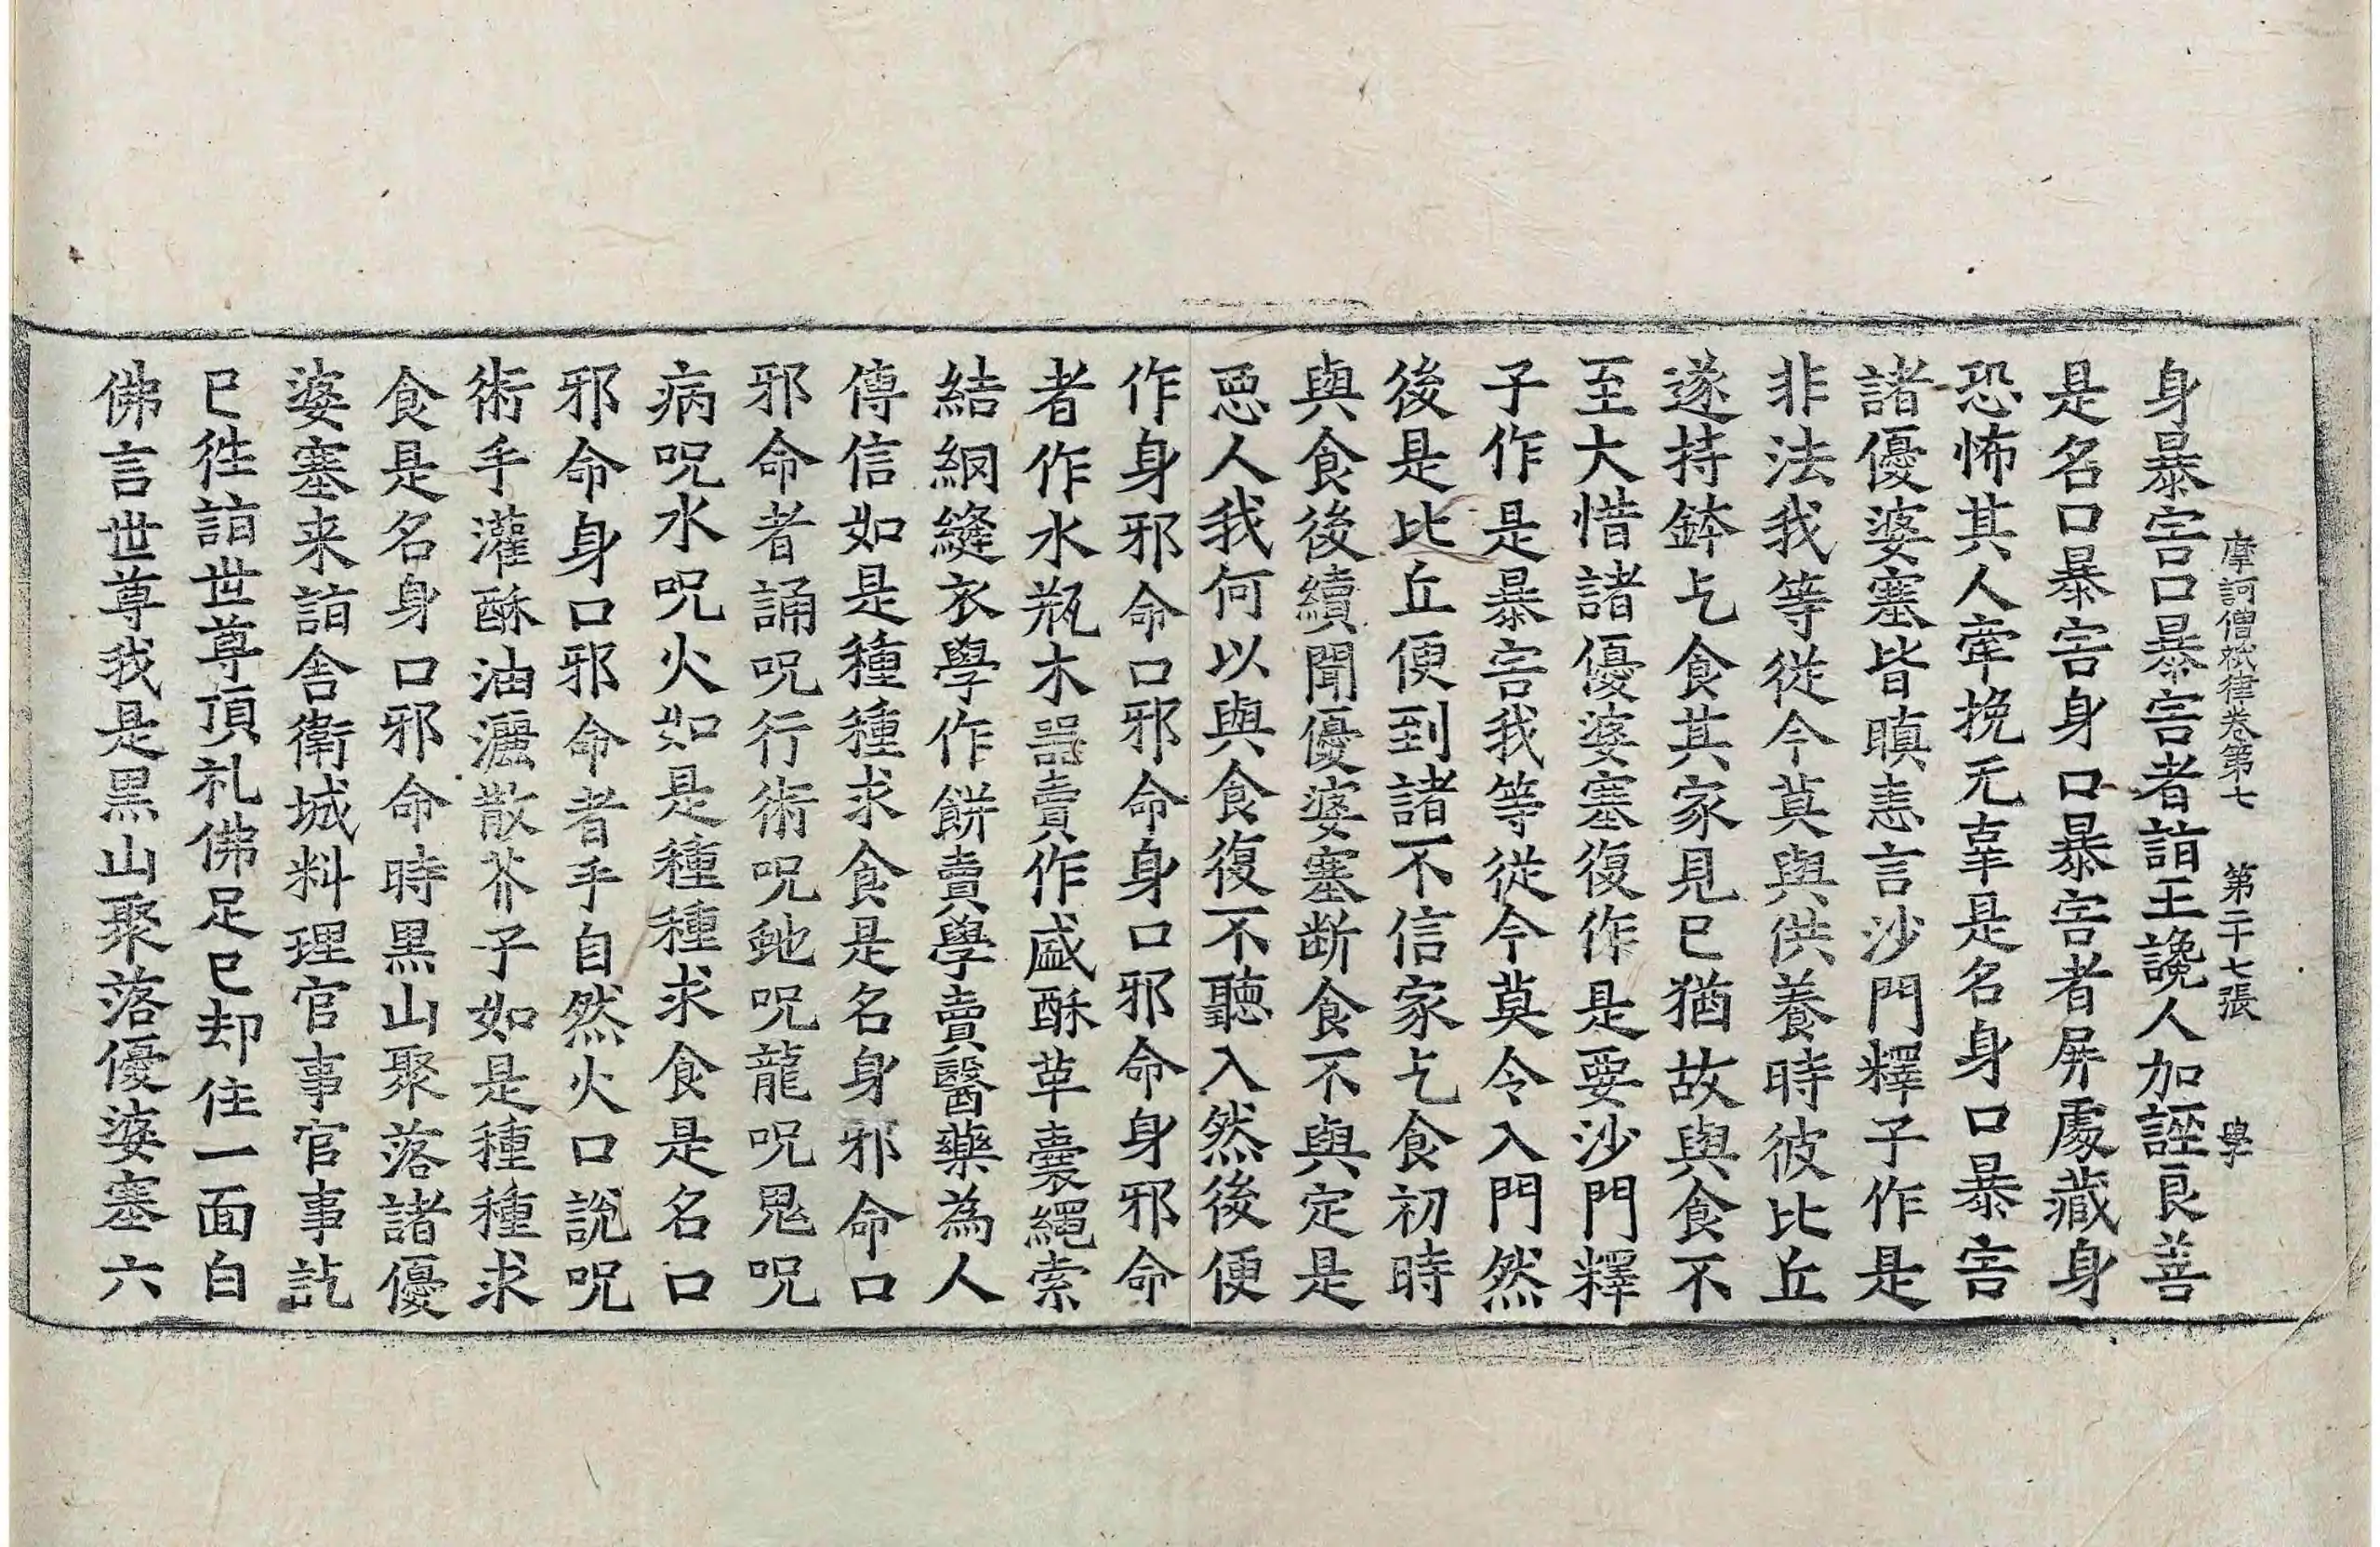 摩訶僧祇律卷第七　第二十七張　學
身暴害口暴害者詣王讒人加誣良善
是名口暴害身口暴害者屏處藏身
恐怖其人牽挽无辜是名身口暴害
諸優婆塞皆瞋恚言沙門釋子作是
非法我等從今莫與供養時彼比丘
遂持鉢乞食其家見已猶故與食不
至大惜諸優婆塞復作是要沙門釋
子作是暴害我等從今莫令入門然
後是比丘便到諸不信家乞食初時
與食後續聞優婆塞斷食不與定是
惡人我何以與食復不聽入然後便
作身邪命口邪命身口邪命身邪命
者作水瓶木器賣作盛酥革囊繩索
結網縫衣學作餅賣學賣醫藥為人
傳信如是種種求食是名身邪命口
邪命者誦呪行術呪虵呪龍呪鬼呪
病呪水呪火如是種種求食是名口
邪命身口邪命者手自然火口說呪
術手灌酥油灑散芥子如是種種求
食是名身口邪命時黑山聚落諸優
婆塞来詣舍衛城料理官事官事訖
已往詣世尊頂礼佛足已却住一面白
佛言世尊我是黑山聚落優婆塞六